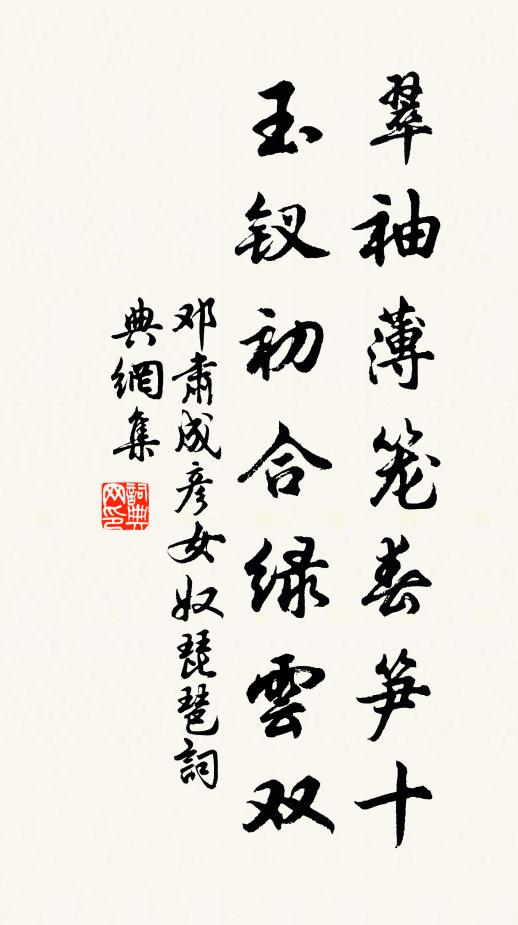 翠袖薄笼春笋十
玉钗初合绿雲双
邓肅成彦女奴琵琶詞
典網集
詞典网印